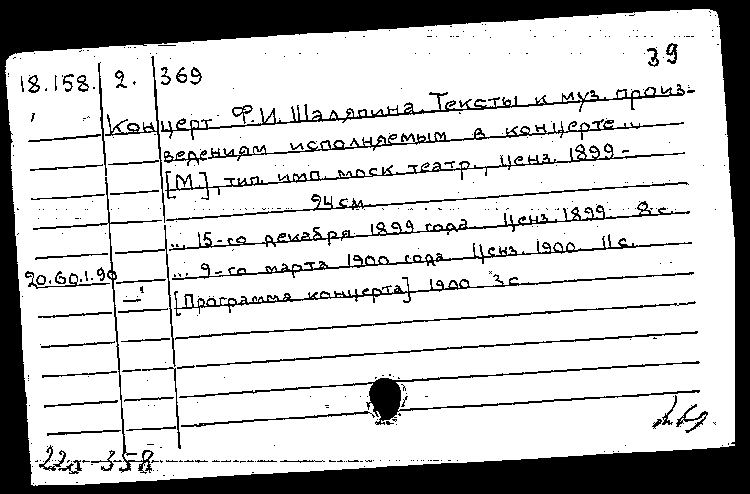 39
18.158. 2. 369
Концерт Ф.И. Шаляпина. Тексты к муз. произ-
ведениям исполняемым в концерте...
[М.], тип. имп. моск. театр., ценз. 1899 -
24 см
... 15-го декабря 1899 года. Ценз. 1899. 8 с.
20.60.1.90 ... 9-го марта 1900 года Ценз. 1900 11 с.
[Программа концерта] 1900 3 с
22а 358